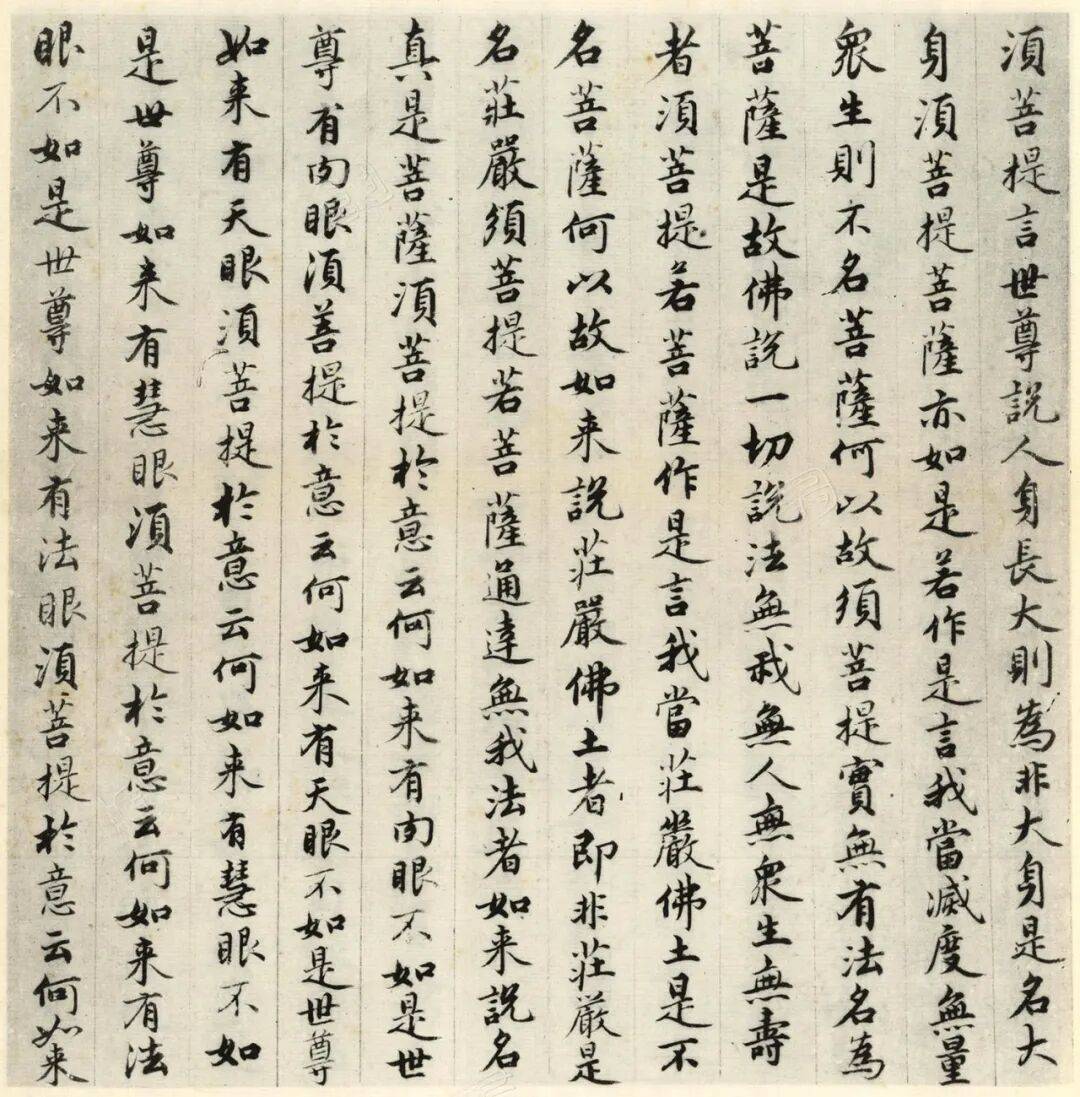 須菩提言世尊說人身長大則為非大身是名大
身須菩提菩薩亦如是若作是言我當滅度無量
衆生則不名菩薩何以故須菩提實無有法名為
菩薩是故佛說一切說法無我無人無衆生無壽
者須菩提若菩薩作是言我當莊嚴佛土是不
名菩薩何以故如来說莊嚴佛土者即非莊嚴是
名莊嚴須菩提若菩薩通達無我法者如来說名
真是菩薩須菩提於意云何如来有肉眼不如是世
尊有肉眼須菩提於意云何如来有天眼不如是世尊
如来有天眼須菩提於意云何如来有慧眼不如
是世尊如来有慧眼須菩提於意云何如来有法
眼不如是世尊如来有法眼須菩提於意云何如来